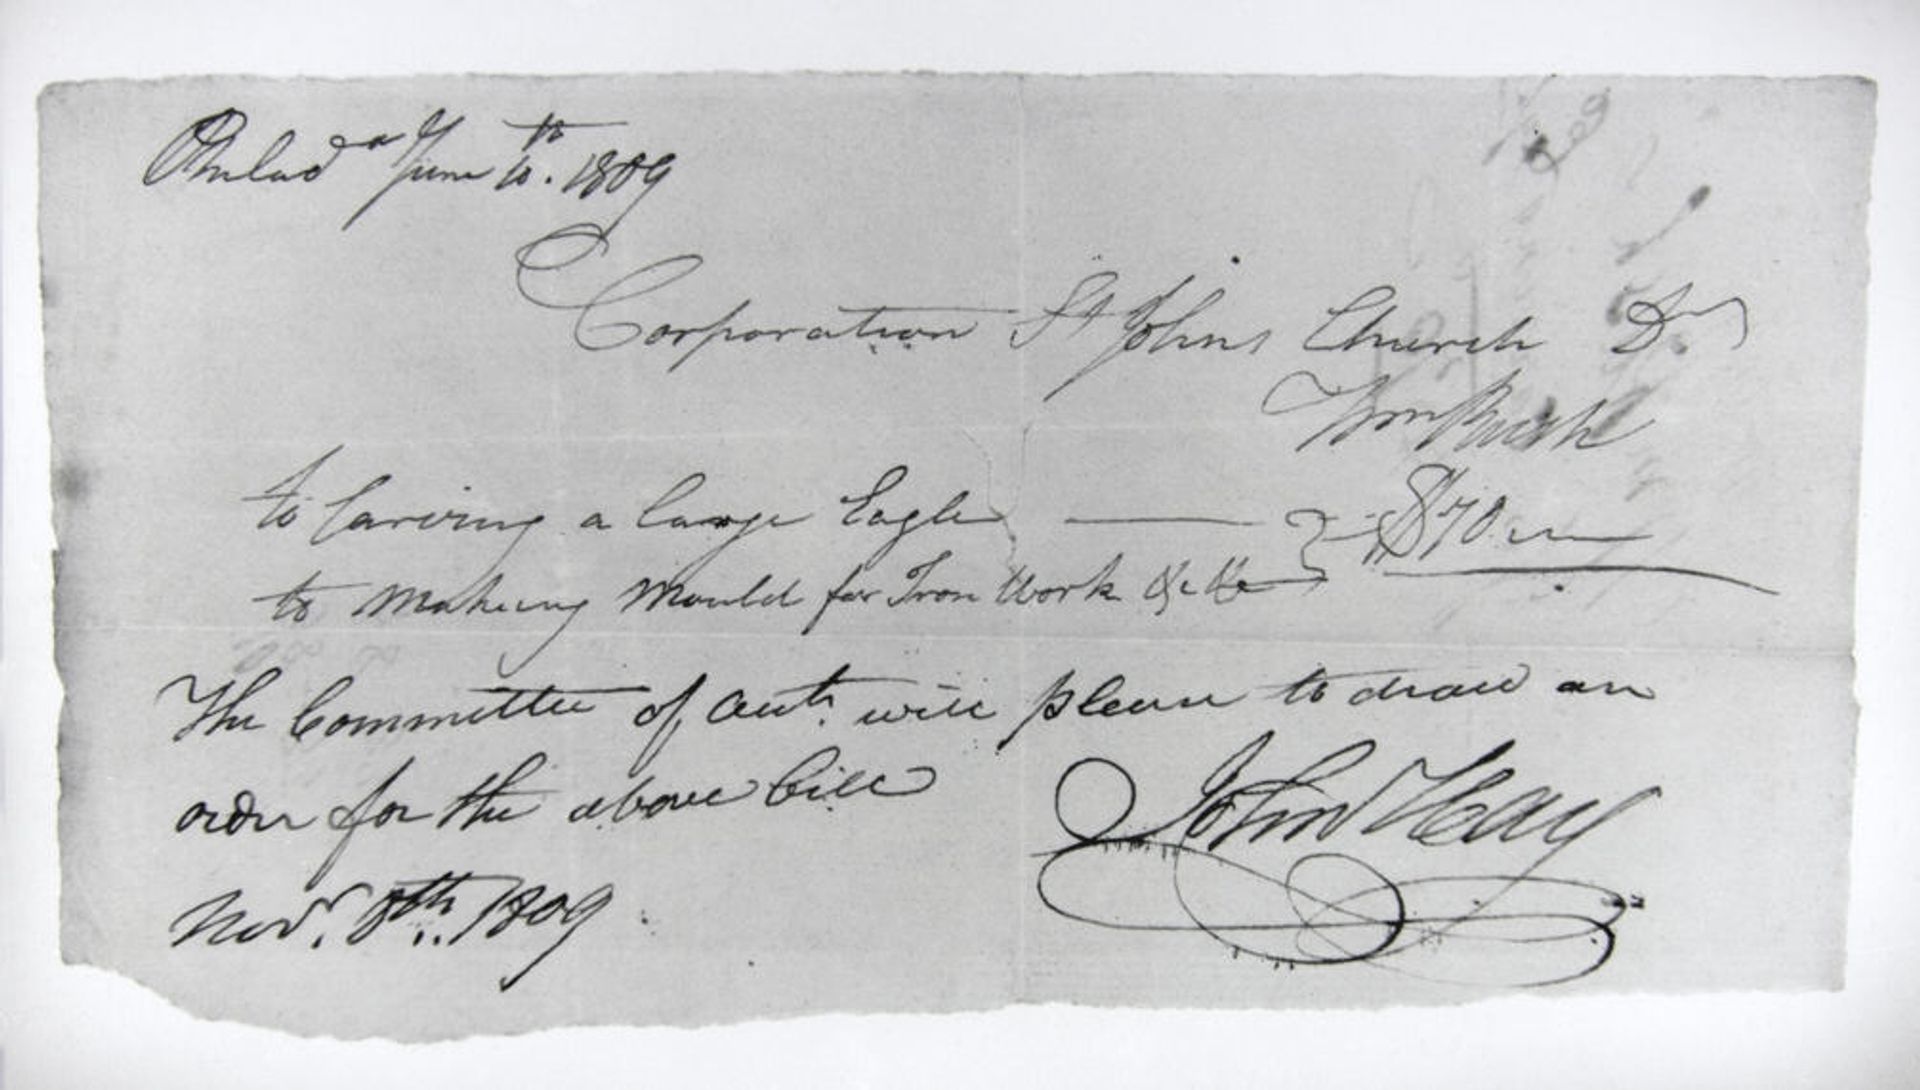 Philad.a June 10th. 1809
Corporation St Johns Church Dr
Wm Rush
to Carving a large Eagle — $70
to Making Mould for Iron Work &c &c
The Committee of will please to draw an
order for the above bill
John Hay
Nov. 8th. 1809